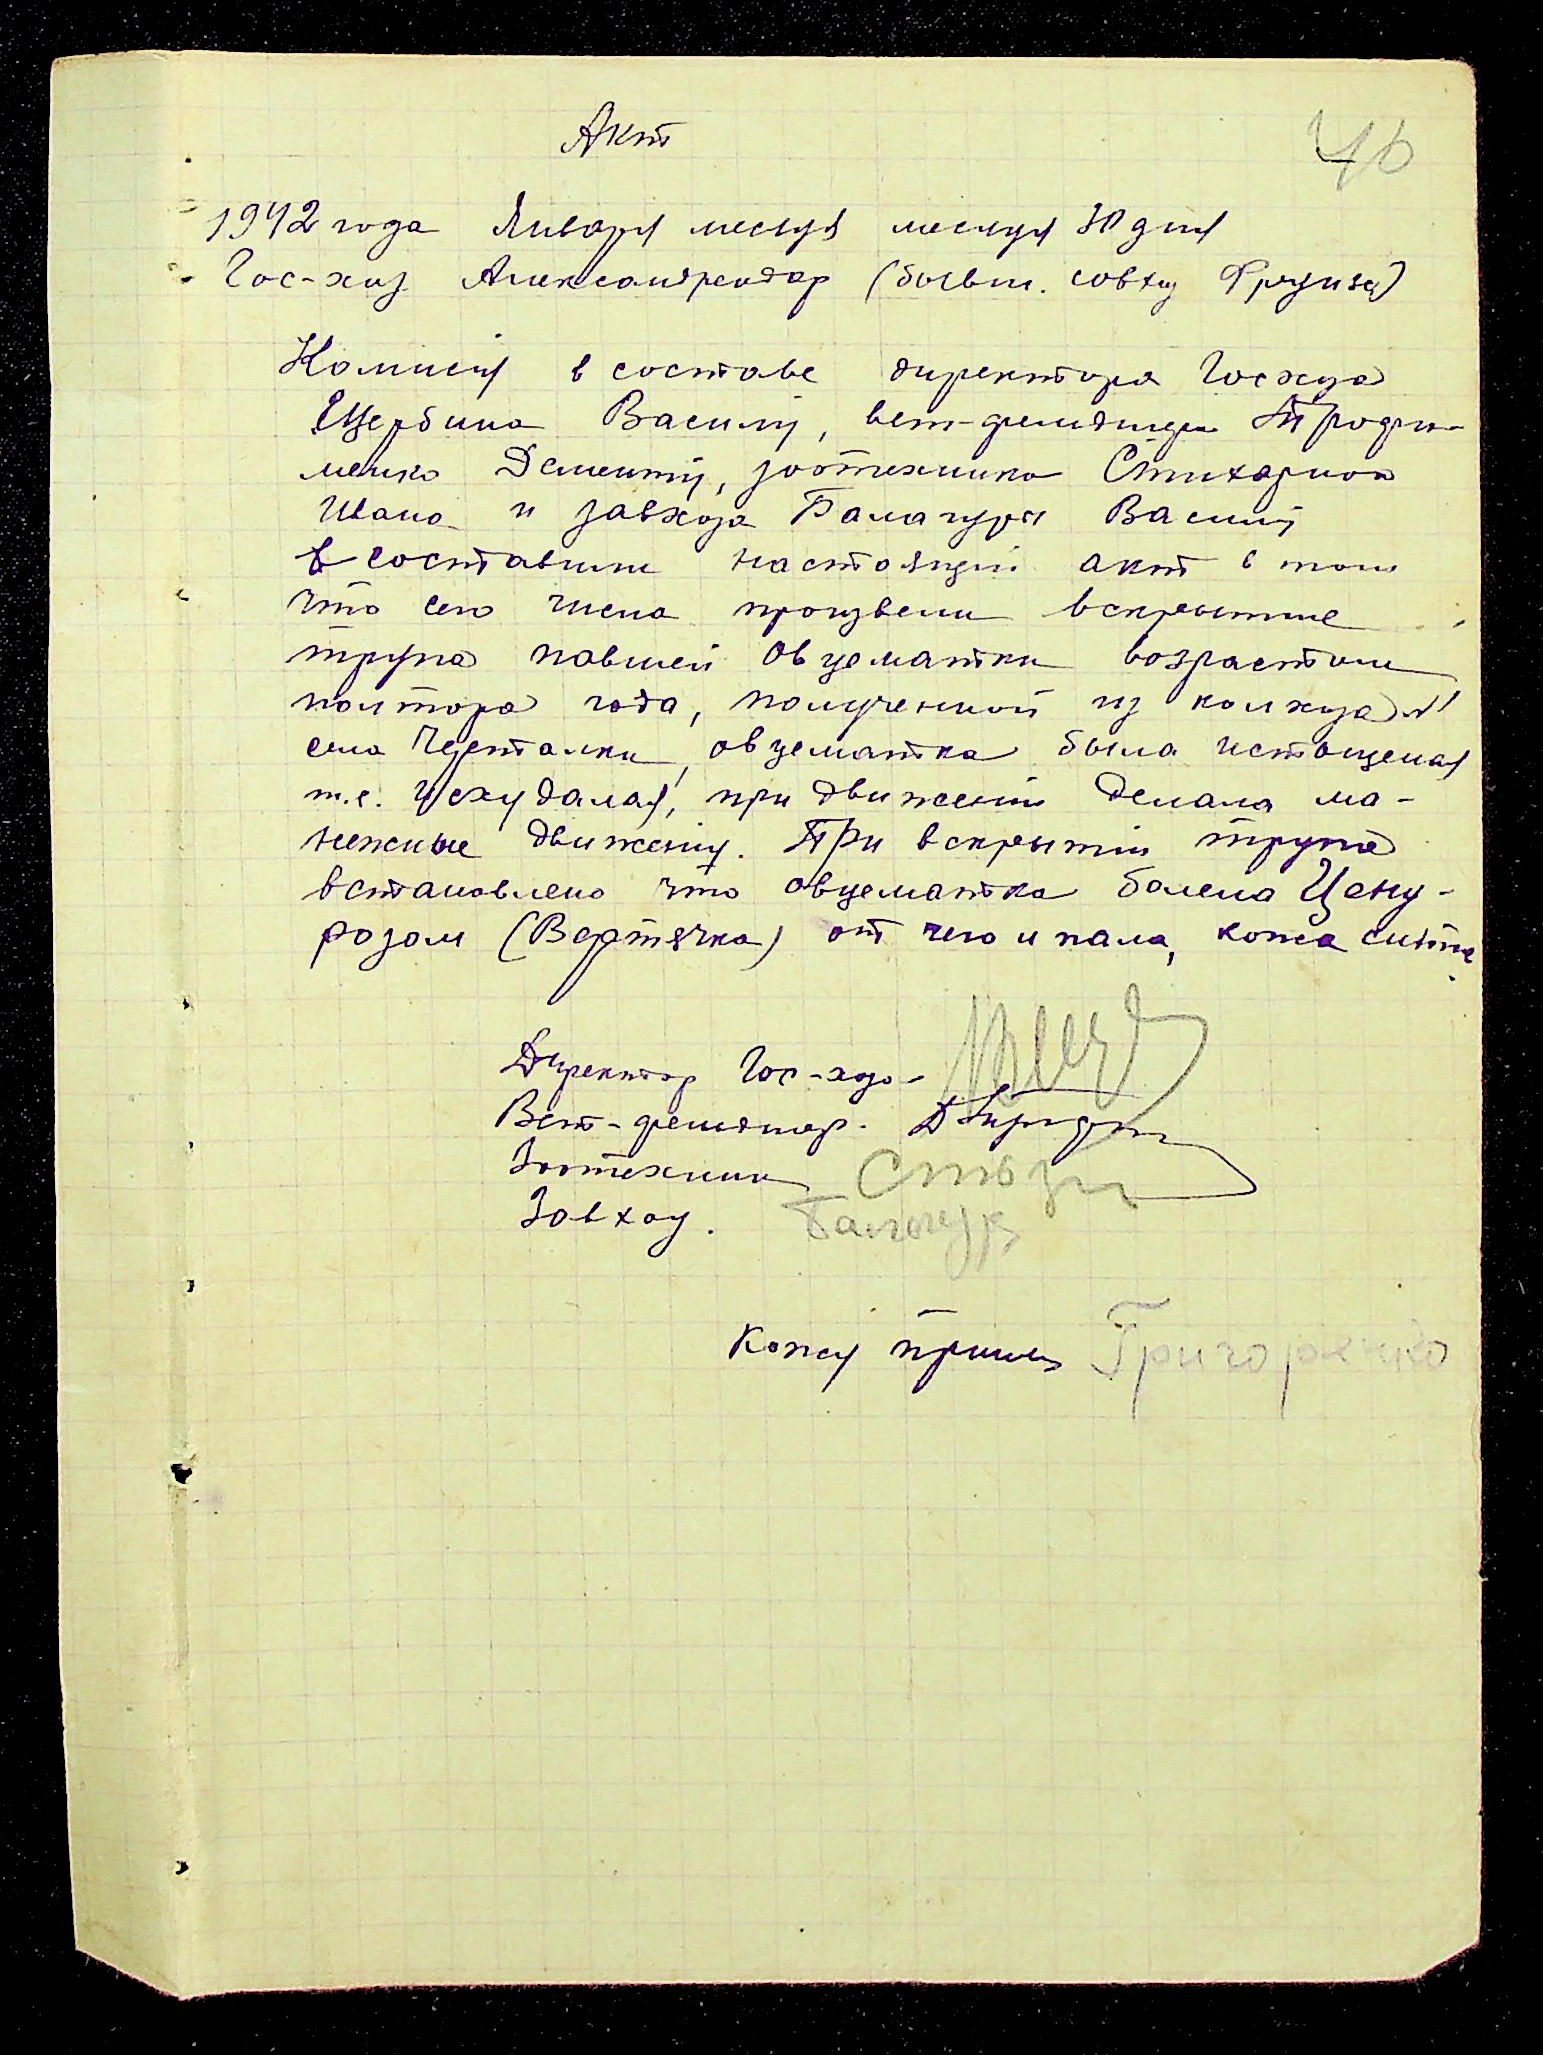 Акт
46
1942 года Января месяця месяця 30 дня
Гос-хоз Александрендар (бывш. совхоз Фрунзе)
Комисия в составе директора Госхоза
Щербина Василия, вет-фельдшера Трофи-
менко Дементия, зоотехника
Ивана и завхоза Баламуры Василия
составили настоящий акт в том
что сего числа произвели вскрытие
трупа павшей овцематки возрастом
полтора года, полученной из колхоза №1
села, овцематка была истощеная
т.е. исхудалая, при движении делала ма-
нежные движения. При вскрытии трупа
встановлено что овцематка болела Цену-
розом (Вертячка) от чего и пала, кожа снята.
Директор Гос-хоза
Вет-фельдшер.
Зоотехник
Завхоз.
Кожу принял Григоренко